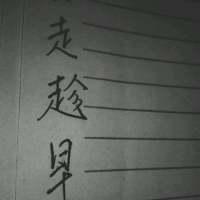 走
趁
早